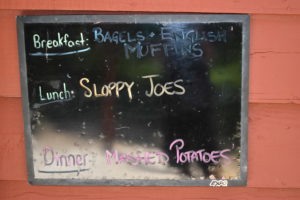 Breakfast: BAGELS + ENGLISH
MUFFINS
Lunch: SLOPPY JOES
Dinner: MASHED POTATOES
EXPO